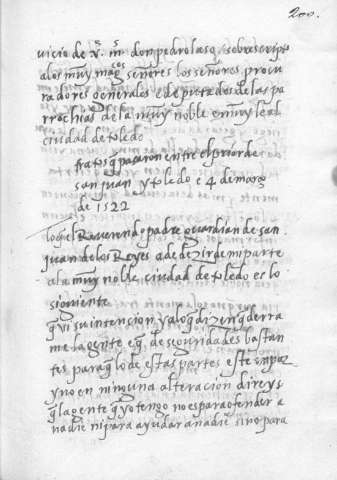 200.
vicio de v. m. don pedro laso, sobrescript
a los muy magcos señores los señores procu
radores generales e deputados de las pa
rrochias de la muy noble e muy leal
ciudad de toledo
tratos q pasaron entre el prior de
san juan y toledo e 4 de março
de 1522
lo q el Reverendo padre guardian de san
juan de los Reyes a de dezir de mi parte
a la muy noble ciudad de toledo es lo
siguiente
q vi su intencion y a lo q dizen q derra
me la gente e q de seguridades bastan
tes para q lo de estas partes este en paz
y no en ninguna alteracion direys
q la gente q yo tengo no es para ofender a
nadie ni para ayudar a nadie sino para